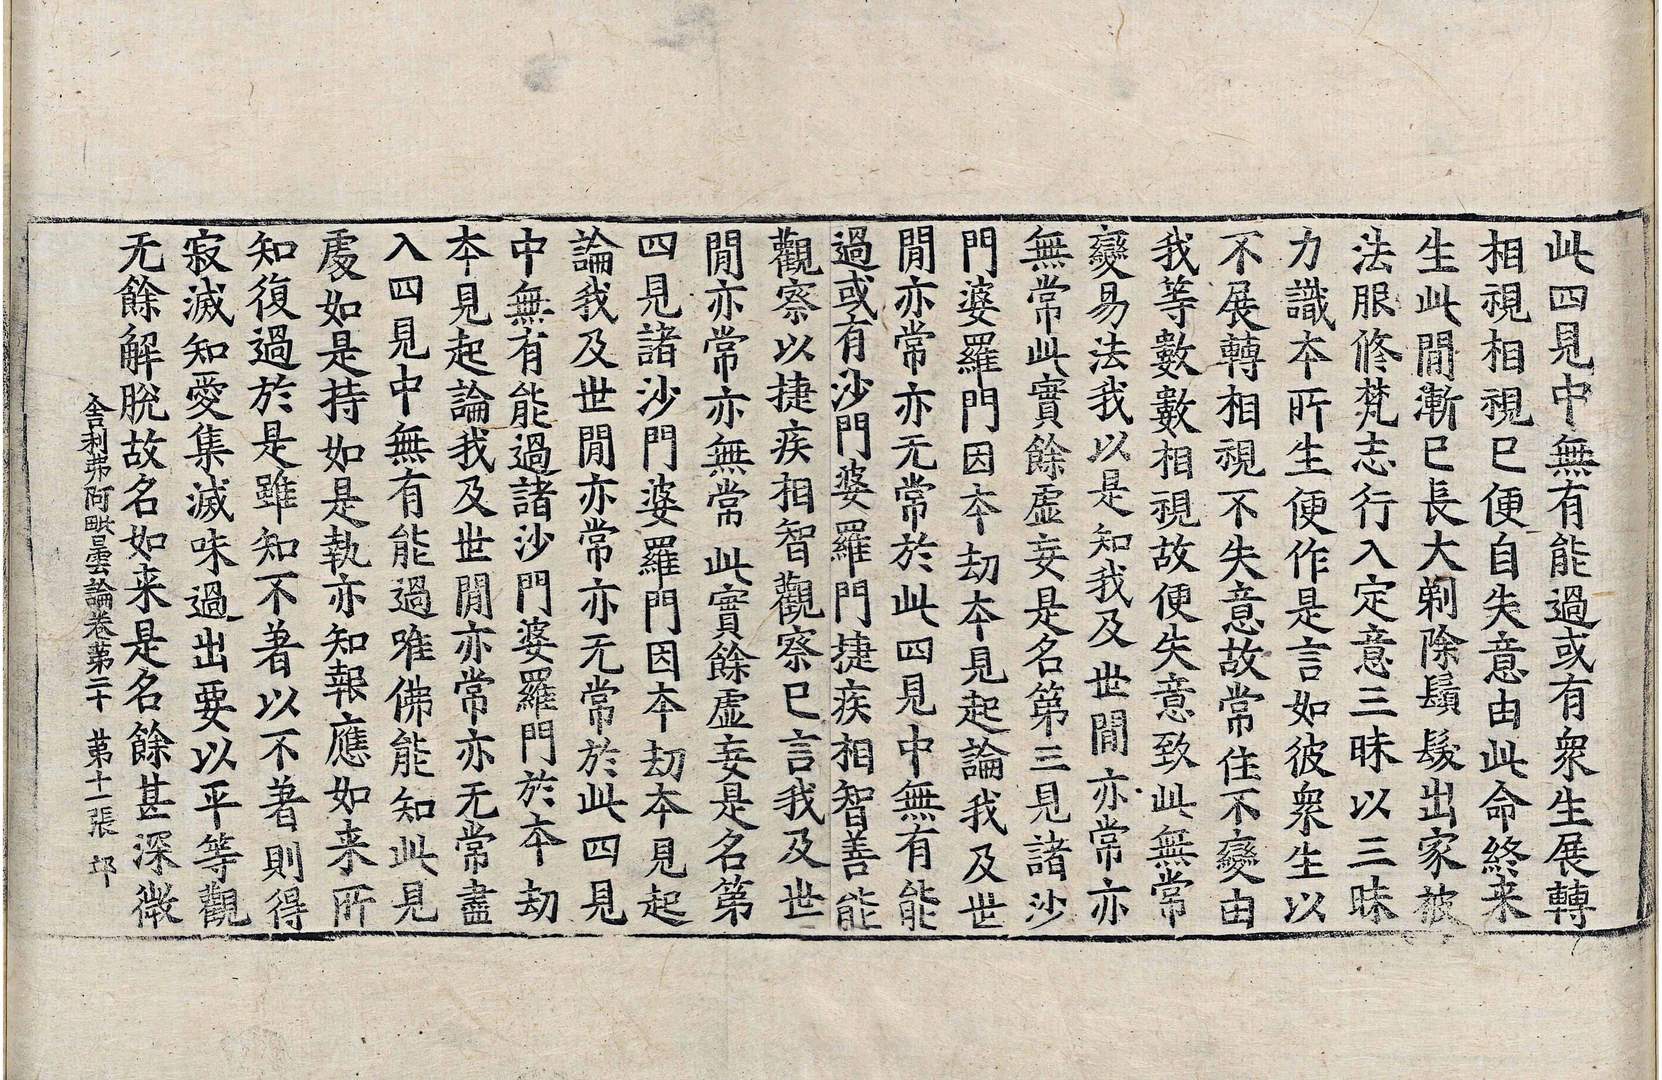 此四見中無有能過或有衆生展轉
相視相視已便自失意由此命終来
生此閒漸已長大剃除鬚髮出家被
法服修梵志行入定意三昧以三昧
力識本所生便作是言如彼衆生以
不展轉相視不失意故常住不變由
我等數數相視故便失意致此無常
變易法我以是知我及世閒亦常亦
無常此實餘虛妄是名第三見諸沙
門婆羅門因本劫本見起論我及世
閒亦常亦无常於此四見中無有能
過或有沙門婆羅門捷疾相智善能
觀察以捷疾相智觀察已言我及世
閒亦常亦無常此實餘虛妄是名第
四見諸沙門婆羅門因本劫本見起
論我及世閒亦常亦无常於此四見
中無有能過諸沙門婆羅門於本劫
本見起論我及世閒亦常亦无常盡
入四見中無有能過唯佛能知此見
處如是持如是執亦知報應如来所
知復過於是雖知不著以不著則得
寂滅知愛集滅味過出要以平等觀
无餘解脫故名如来是名餘甚深微
舎利弗阿毗曇論卷第二十 第十一張